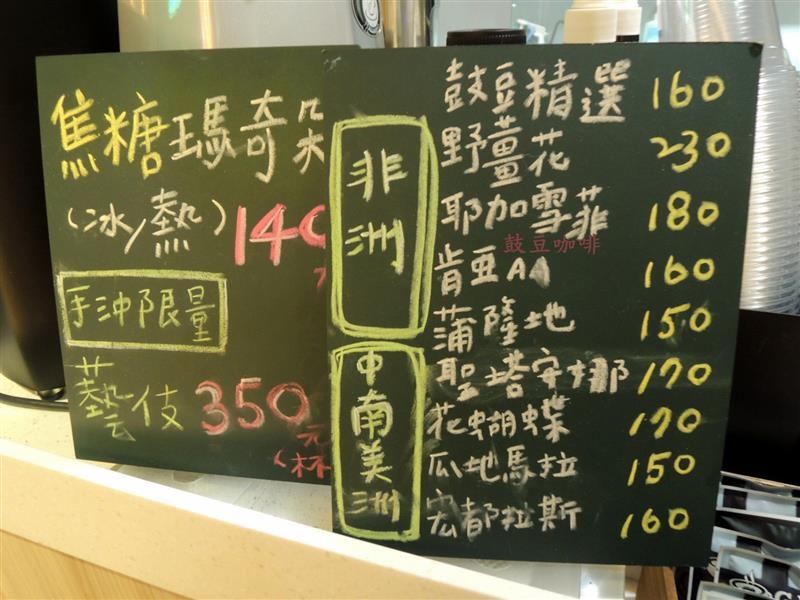 焦糖瑪奇朵
(冰/熱) 140
手沖限量
藝伎 350
元
(杯
非洲
鼓豆精選 160
野薑花 230
耶加雪菲 180
鼓豆咖啡
肯亞AA 160
蒲隆地 150
中南美洲
聖塔安娜 170
花蝴蝶 170
瓜地馬拉 150
宏都拉斯 160